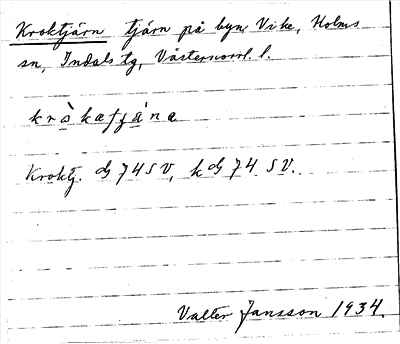 Kroktjärn tjärn på byn Vike, Holms
sn, Indals tg, Västernorrl. l.
Kroktj. 74 SV, k 74 SV.
Valter Jansson 1934.